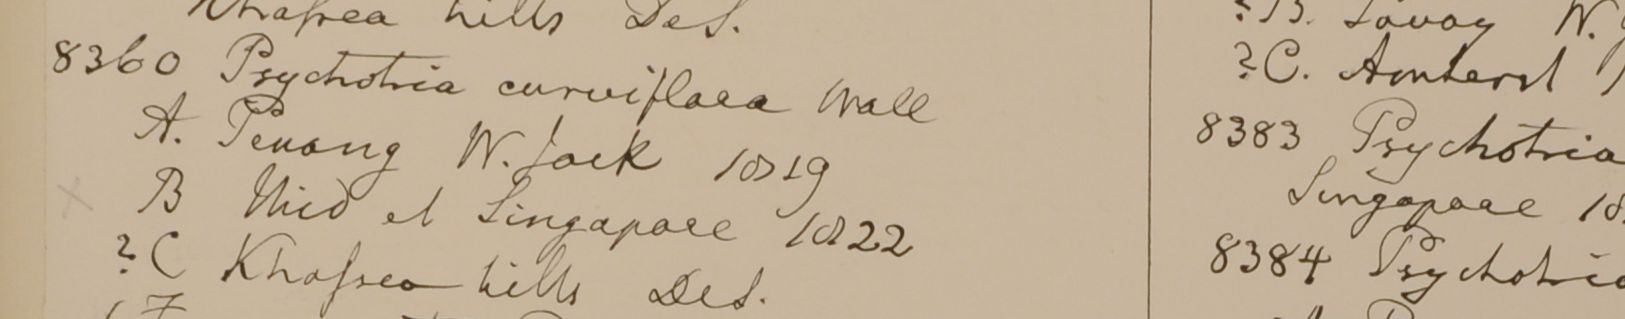 Khasea hills DeS.
8360 Psychotria curviflora Wall
A. Penang W. Jack 1819
B Ibid et Singapore 1822
?C Khasea hills DeS.
?B. Tavoy W.
?C. Amherst
8383 Psychotria
Singapore 18
8384 Psychotri